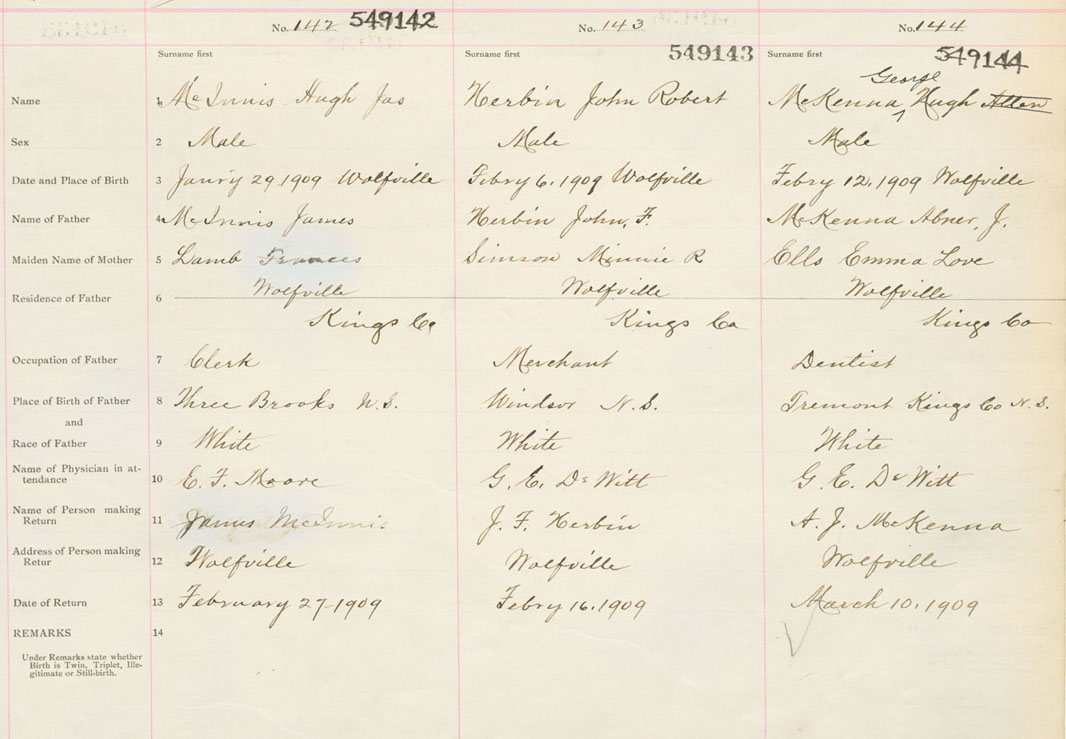 No. 142 549142 No. 143 No. 144
Surname first Surname first 549143 Surname first 549144
George
Name 1 McInnis Hugh Jas Herbin John Robert McKenna ^ Hugh Allen
Sex 2 Male Male Male
Date and Place of Birth 3 Janry 29 1909 Wolfville Febry 6. 1909 Wolfville Febry 12. 1909 Wolfville
Name of Father 4 McInnis James Herbin John, F. McKenna Abner, J.
Maiden Name of Mother 5 Lamb Frances Simson Minnie R Ells Emma Love
Wolfville Wolfville Wolfville
Residence of Father 6
Kings Co Kings Co Kings Co
Occupation of Father 7 Clerk Merchant Dentist
Place of Birth of Father 8 Three Brooks N.S. Windsor N.S. Tremont Kings Co N.S.
and
Race of Father 9 White White White
Name of Physician in at-
tendance 10 E. F. Moore G. E. DeWitt G. E. DeWitt
Name of Person making
Return 11 James McInnis J. F. Herbin A. J. McKenna
Address of Person making
Retur 12 Wolfville Wolfville Wolfville
Date of Return 13 February 27-1909 Febry 16. 1909 March 10. 1909
REMARKS 14
Under Remarks state whether
Birth is Twin, Triplet, Ille-
gitimate or Still-birth.